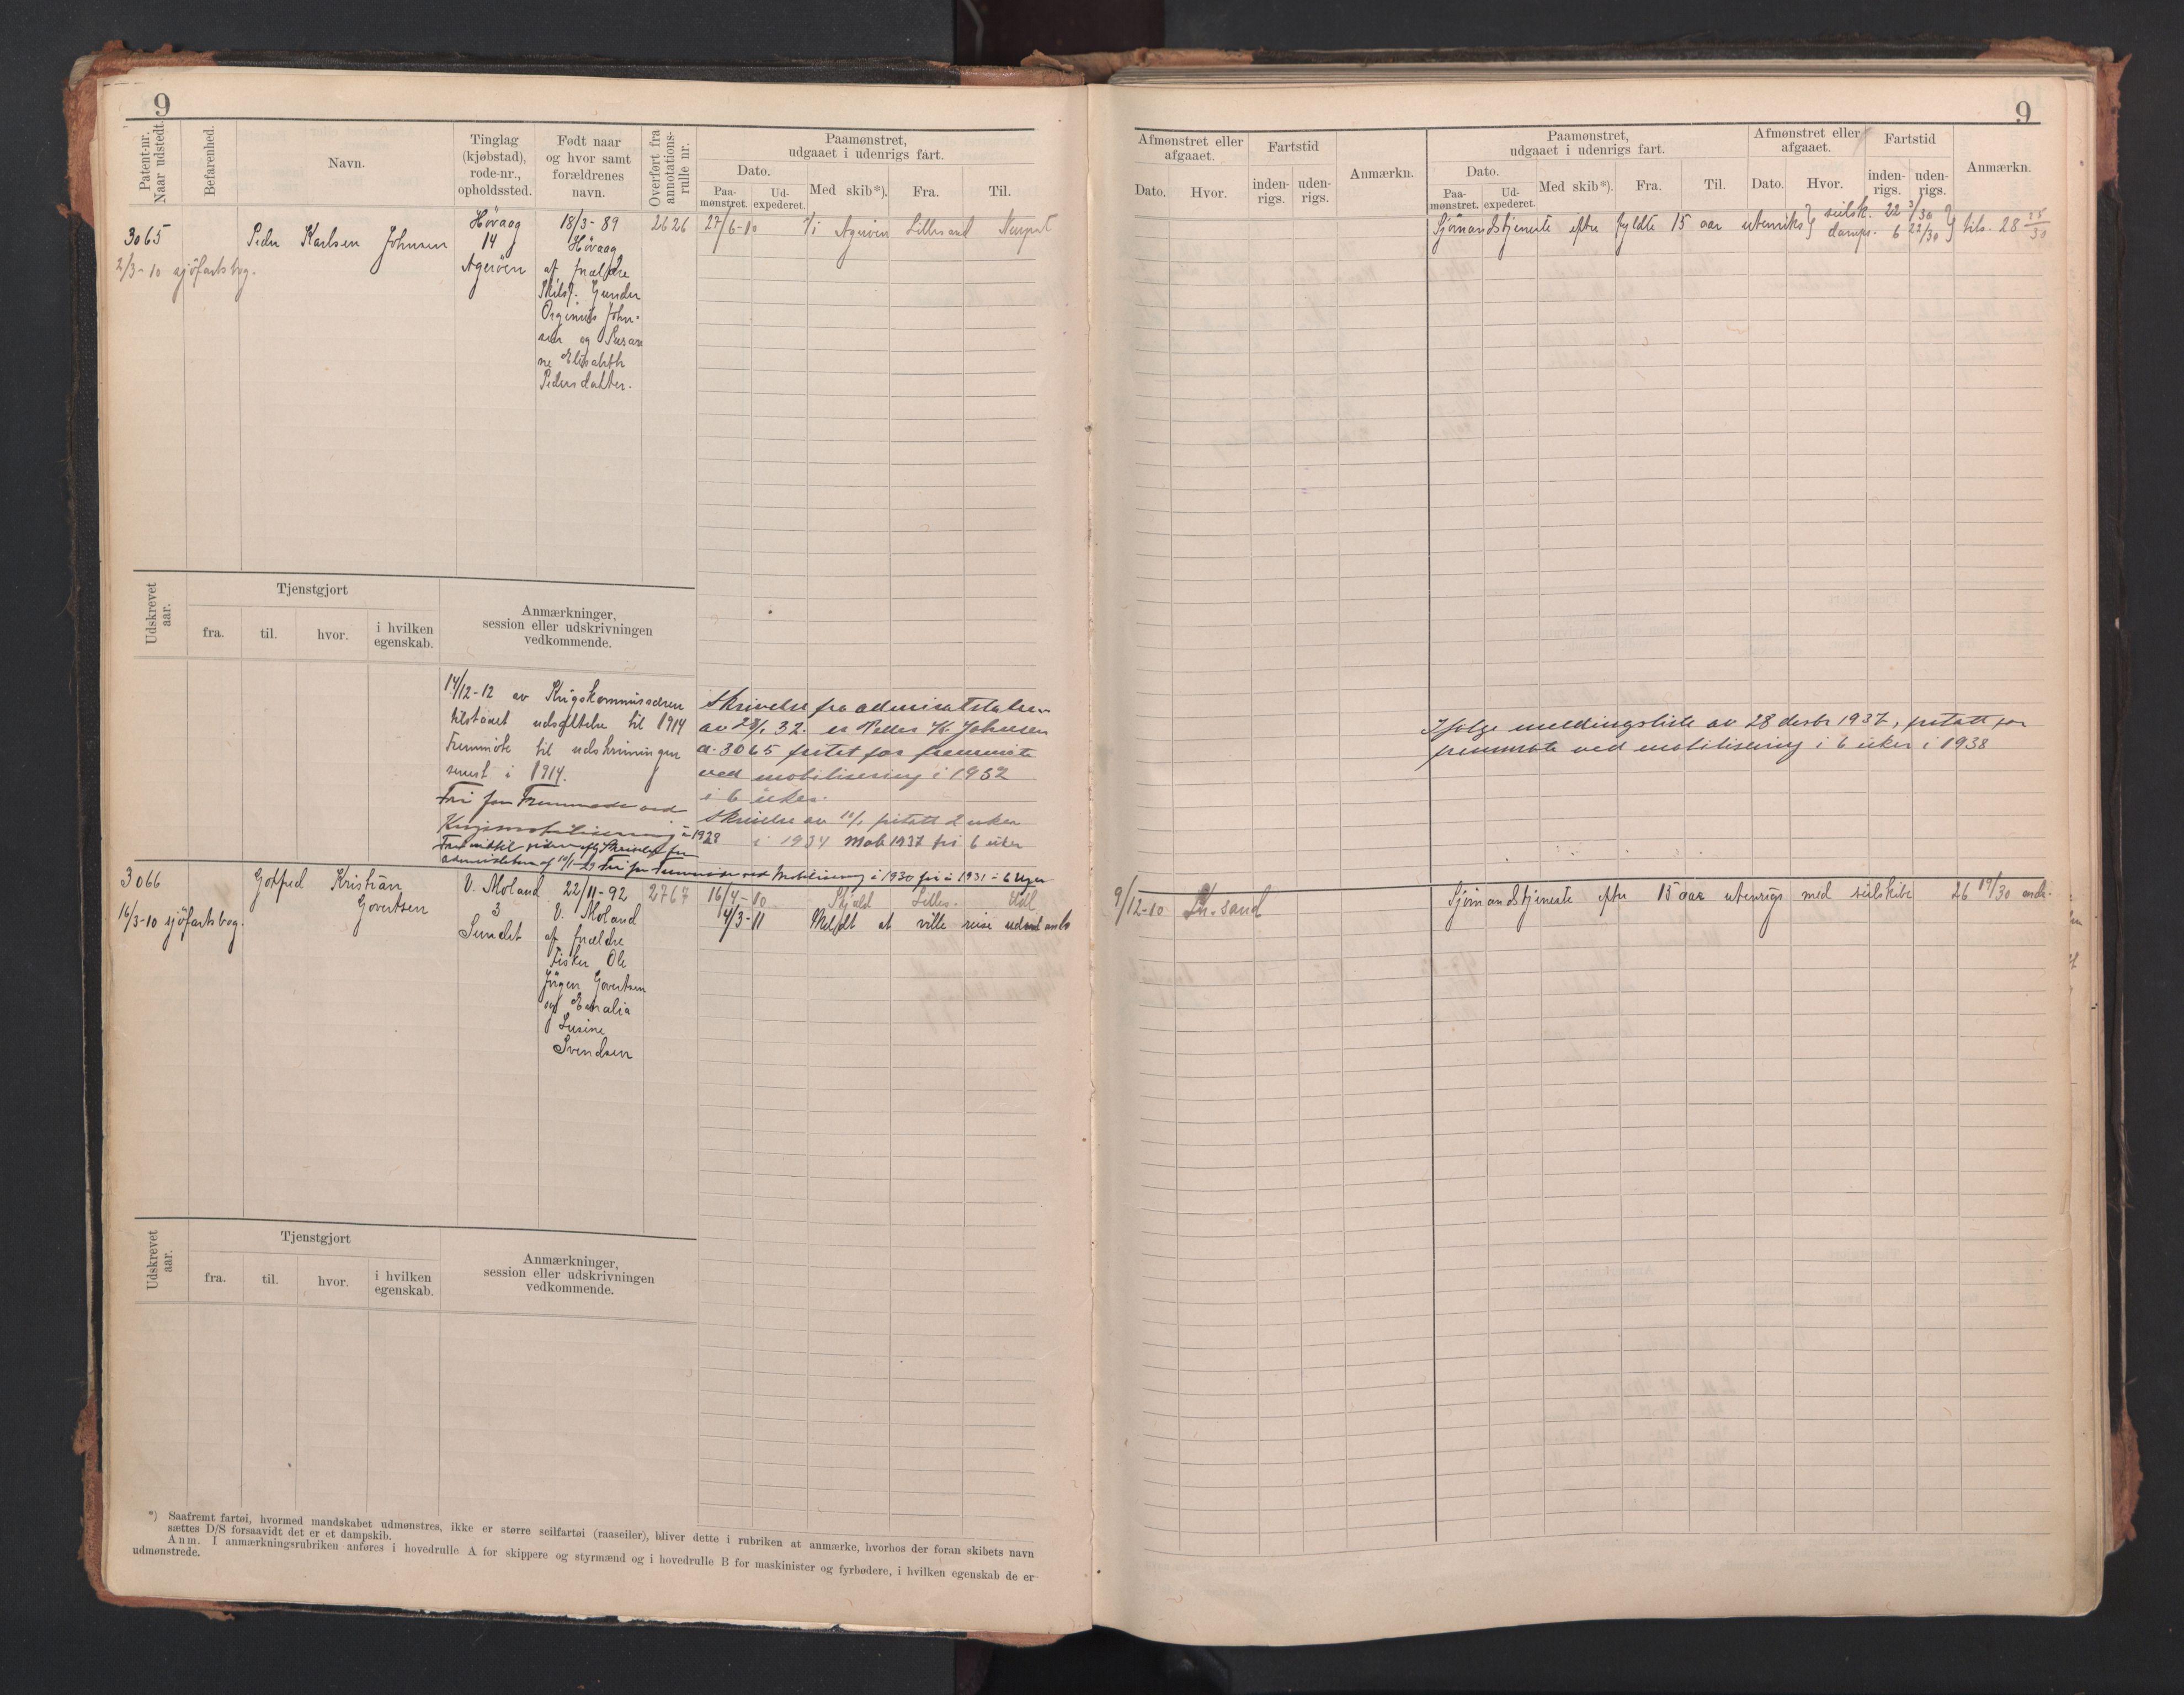 9
Patent-nr. Naar udstedt.
Befarenhed.
Navn.
Tinglag (kjøbstad), rode-nr., opholdssted.
Født naar og hvor samt forældrenes navn.
Overført fra annotations-rulle nr.
Paamønstret, udgaaet i udenrigs fart.
Dato.
Paa-mønstret.
Ud-expederet.
Med skib*).
Fra.
Til.
3065
2/3-10 sjöfartsbog.
Peder Karlsen Johnsen
Hövaag
14
Ageröen
18/3-89
Hövaag
af forældre
Gunder
John-
sen og Susan
ne Elisabeth
Pedersdatter.
2626
27/6-10
Ageröen Lillesand
Udskrevet aar.
Tjenstgjort
fra.
til.
hvor.
i hvilken egenskab.
Anmærkninger, session eller udskrivningen vedkommende.
14/12-12 av Krigskommissæren
tilstaaet udsættelse til 1914
Fremmöte til udskrivningen
senest i 1914.
Fri for Fremmøde ved
Krigsmobilisering i 1928
Fri for Fremmøde ved Mobilisering i 1930 fri i 1931 - 6 Uger
Skrivelse fra admiralstaben
av 32. er Peder K. Johnsen
a. 3065 fritat for fremmøte
ved mobilisering i 1932
i 6 uker.
Skrivelse av 11/1 fritatt 2 uker
i 1934 Mob 1937 fri 6 uker
3066
16/3-10 sjöfartsbog.
Gotfred Kristian
Govertsen
V. Moland
3
Sundet
22/11-92
V. Moland
af forældre
Fisker Ole
Jörgen Govertsen
og Emalia
Lusine
Svendsen
2767
16/4-10 Skjold Lilles. Hull
14/3-11 Meldt at ville reise udenlands
Udskrevet aar.
Tjenstgjort
fra.
til.
hvor.
i hvilken egenskab.
Anmærkninger, session eller udskrivningen vedkommende.
*) Saafremt fartøi, hvormed mandskabet udmønstres, ikke er større seilfartøi (raaseiler), bliver dette i rubriken at anmærke, hvorhos der foran skibets navn
sættes D/S forsaavidt det er et dampskib.
Anm. I anmærkningsrubriken anføres i hovedrulle A for skippere og styrmænd og i hovedrulle B for maskinister og fyrbødere, i hvilken egenskab de er
udmønstrede.
9
Afmønstret eller afgaaet.
Dato.
Hvor.
Fartstid
inden-rigs.
uden-rigs.
Anmærkn.
Paamønstret, udgaaet i udenrigs fart.
Dato.
Paa-mønstret.
Ud-expederet.
Med skib*).
Fra.
Til.
Afmønstret eller afgaaet.
Dato.
Hvor.
Fartstid
inden-rigs.
uden-rigs.
Anmærkn.
Sjömandstjeneste efter fyldte 15 aar utenriks } seilsk. 22 3/30 } tils. 28 25/30
damps. 6 22/30
Ifølge meldingsliste av 28 desbr 1937, fritatt for
fremmøte ved mobilisering i 6 uker i 1938
9/12-10 Kr.sand
Sjömandstjeneste efter 15 aar utenrigs med seilskibe 26 19/30